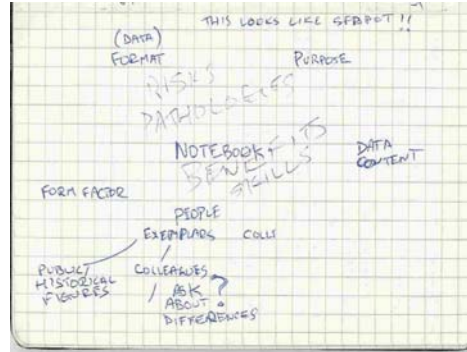 THIS LOOKS LIKE
(DATA)
FORMAT
PURPOSE
RISKS
PATHOLOGIES
NOTEBOOK
BENEFITS
SKILLS
DATA
CONTENT
FORM FACTOR
PEOPLE
EXEMPLARS COLL
PUBLIC/
HISTORICAL
FIGURES
COLLEAGUES
ASK ?
ABOUT
DIFFERENCES